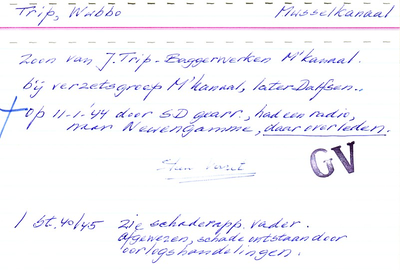 Trip, Wubbo Musselkanaal
zoon van J. Trip - Baggerwerken M'kanaal.
bij verzetsgroep M'kanaal, later Dalfsen.
op 11-1-'44 door SD gearr., had een radio,
naar Neuengamme, daar overleden.
GV
1 St. 40/45 zie schaderapp. vader.
afgewezen, schade ontstaan door
oorlogshandelingen.